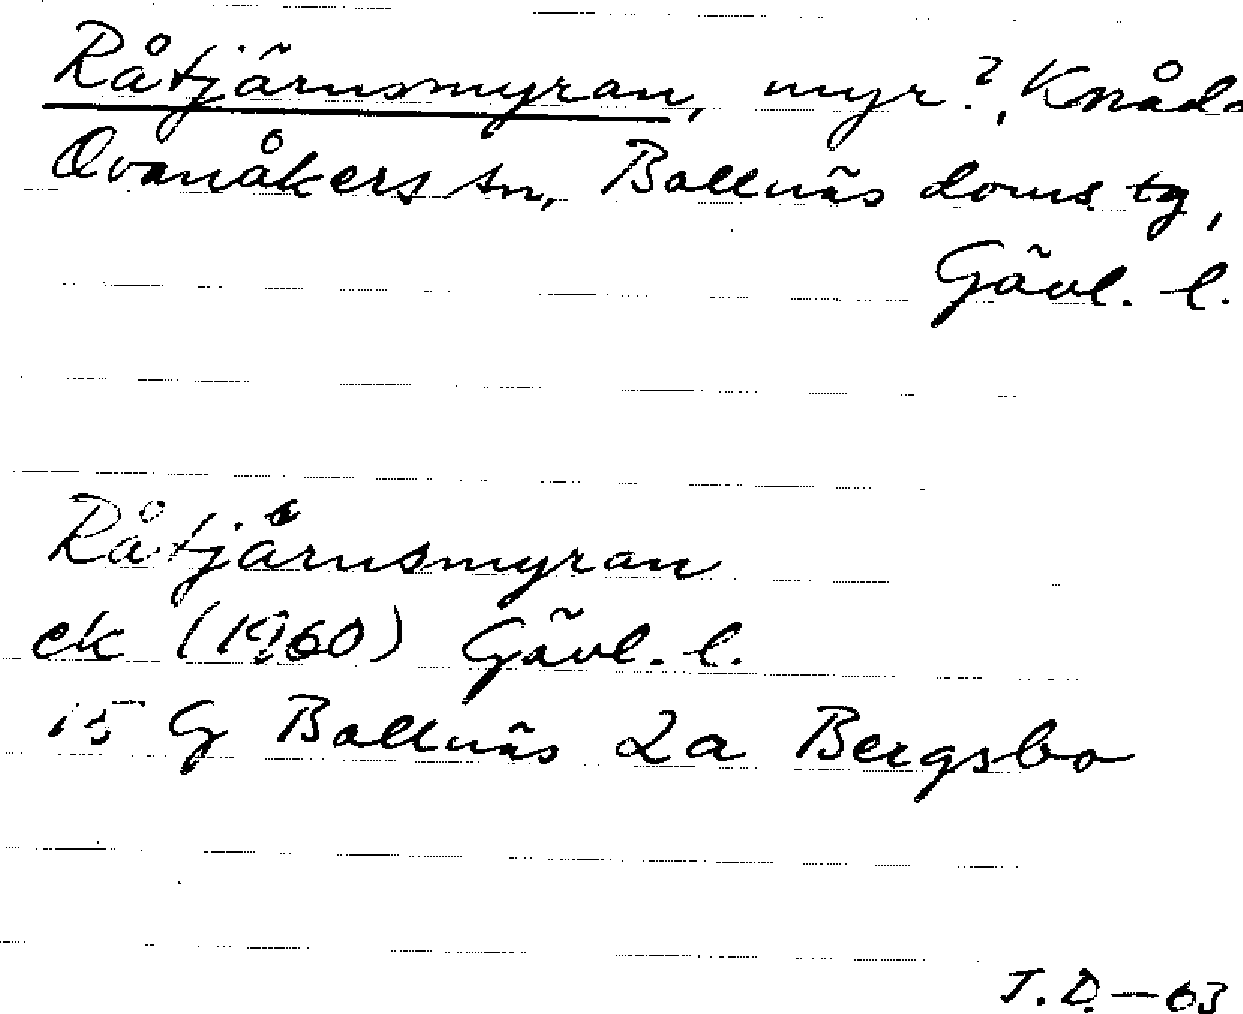 Råtjärnsmyran, myr?, Knåda
Ovanåkers sn, Bollnäs doms. tg,
Gävl. l.
Råtjärnsmyran
ek (1960) Gävl. l.
15 G Bollnäs 2a Bergsbo
J. D. — 63